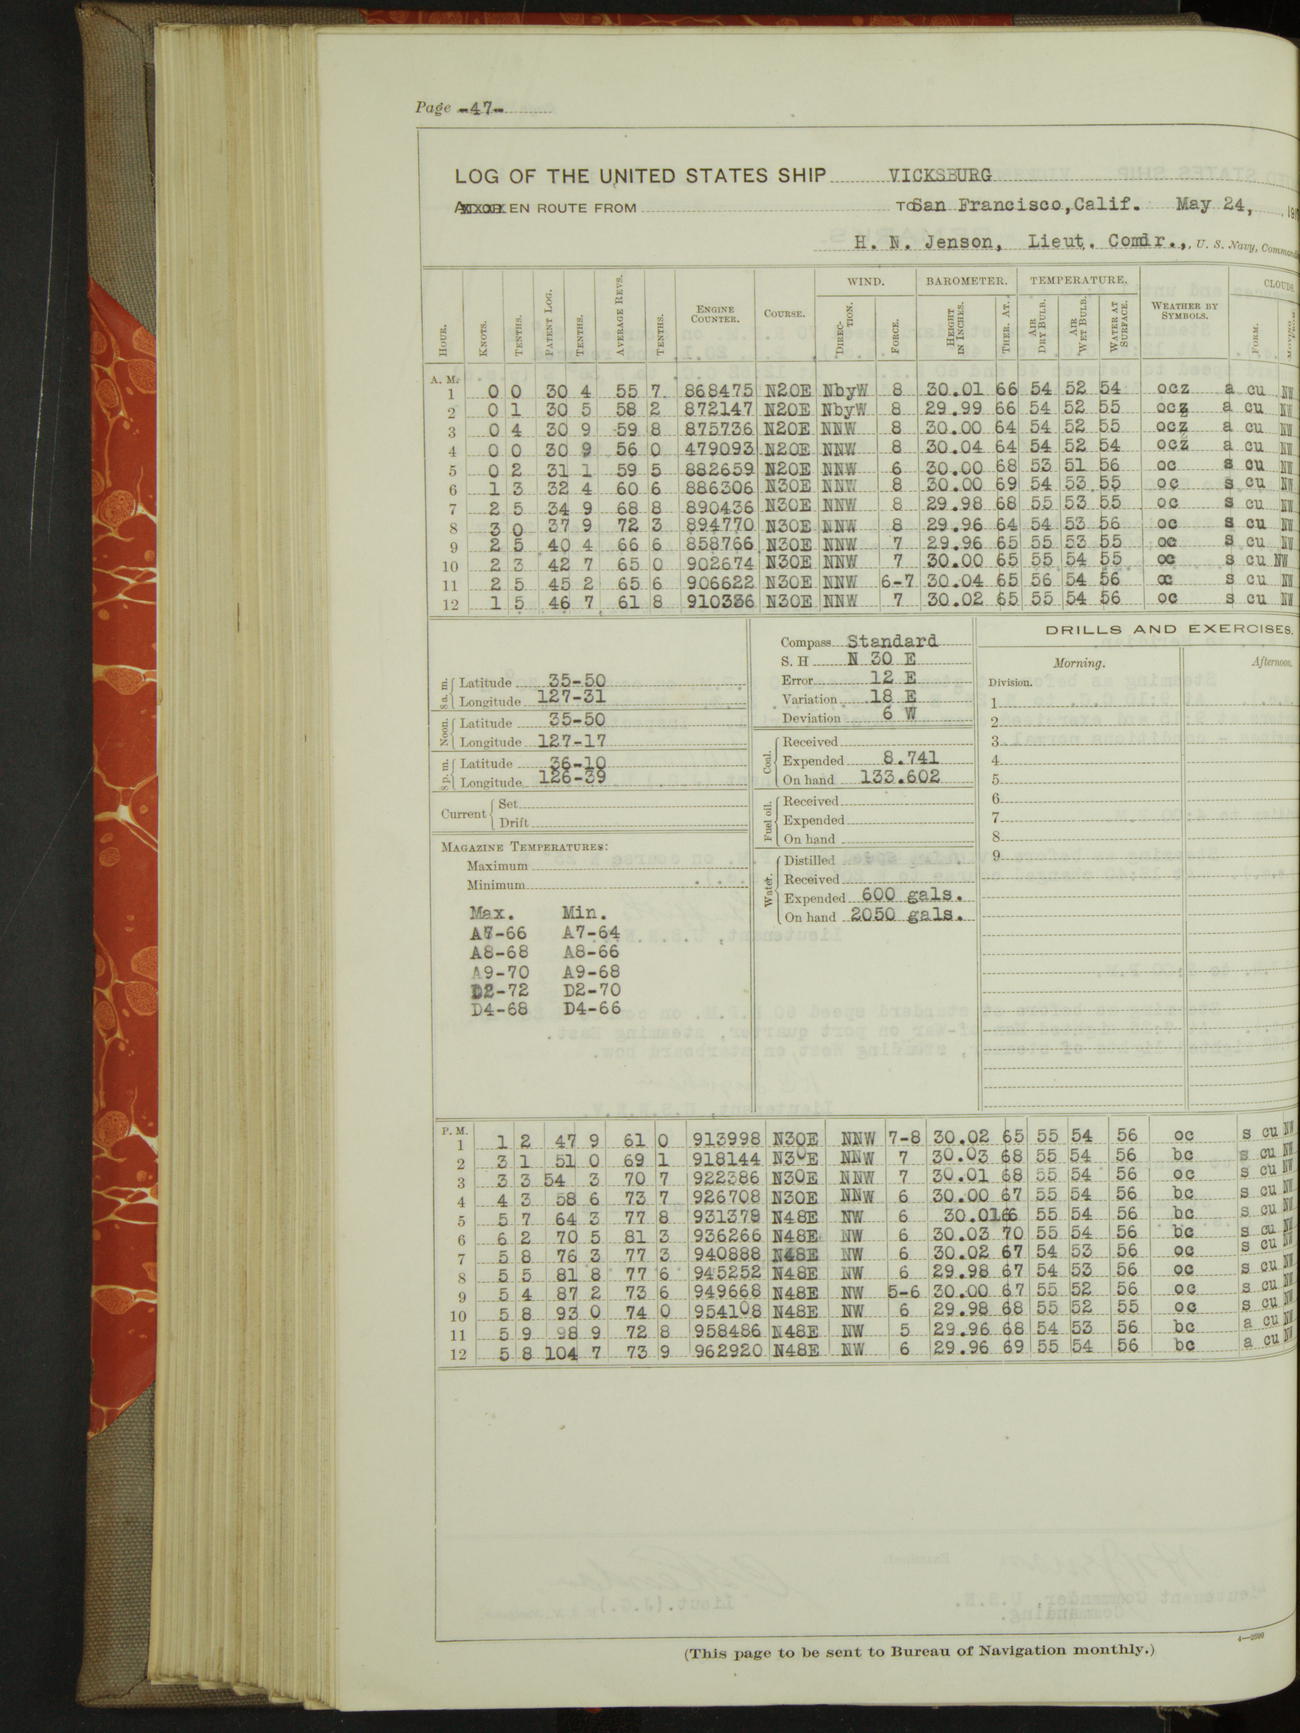 Page -47-
LOG OF THE UNITED STATES SHIP VICKSBURG
EN ROUTE FROM TO San Francisco, Calif. May 24, 191
H. N. Jenson, Lieut. Comdr., U. S. Navy, Comman
HOUR. KNOTS. TENTHS. PATENT LOG. TENTHS. AVERAGE REVS. TENTHS. ENGINE COUNTER. COURSE. WIND. DIRECTION. FORCE. BAROMETER. HEIGHT IN INCHES. THER. AT. TEMPERATURE. AIR DRY BULB. AIR WET BULB. WATER AT SURFACE. WEATHER BY SYMBOLS. CLOUDS. FORM.
A. M.
1 0 0 30 4 55 7 868475 N20E NbyW 8 30.01 66 54 52 54 ocz a cu NW
2 0 1 30 5 58 2 872147 N20E NbyW 8 29.99 66 54 52 55 ocz a cu NW
3 0 4 30 9 59 8 875736 N20E NNW 8 30.00 64 54 52 55 ocz a cu NW
4 0 0 30 9 56 0 479093 N20E NNW 8 30.04 64 54 52 54 ocz a cu NW
5 0 2 31 1 59 5 882659 N20E NNW 6 30.00 68 53 51 56 oc s cu NW
6 1 3 32 4 60 6 886306 N30E NNW 8 30.00 69 54 53 55 oc s cu NW
7 2 5 34 9 68 8 890436 N30E NNW 8 29.98 68 55 53 55 oc s cu NW
8 3 0 37 9 72 3 894770 N30E NNW 8 29.96 64 54 53 56 oc s cu NW
9 2 5 40 4 66 6 858766 N30E NNW 7 29.96 65 55 53 55 oc s cu NW
10 2 3 42 7 65 0 902674 N30E NNW 7 30.00 65 55 54 55 oc s cu NW
11 2 5 45 2 65 6 906622 N30E NNW 6-7 30.04 65 56 54 56 oc s cu NW
12 1 5 46 7 61 8 910336 N30E NNW 7 30.02 65 55 54 56 oc s cu NW
8 a. m. Latitude 35-50
Longitude 127-31
Noon. Latitude 35-50
Longitude 127-17
8 p. m. Latitude 36-10
Longitude 126-39
Current Set
Drift
MAGAZINE TEMPERATURES:
Maximum
Minimum
Max. Min.
A7-66 A7-64
A8-68 A8-66
A9-70 A9-68
D2-72 D2-70
D4-68 D4-66
Compass Standard
S. H N 30 E
Error 12 E
Variation 18 E
Deviation 6 W
Coal. Received
Expended 8.741
On hand 133.602
Fuel oil. Received
Expended
On hand
Water. Distilled
Received
Expended 600 gals.
On hand 2050 gals.
DRILLS AND EXERCISES.
Morning. Afternoon.
Division.
1
2
3
4
5
6
7
8
9
P. M.
1 1 2 47 9 61 0 913998 N30E NNW 7-8 30.02 65 55 54 56 oc s cu NW
2 3 1 51 0 69 1 918144 N30E NNW 7 30.03 68 55 54 56 bc s cu NW
3 3 3 54 3 70 7 922386 N30E NNW 7 30.01 68 55 54 56 oc s cu NW
4 4 3 58 6 73 7 926708 N30E NNW 6 30.00 67 55 54 56 bc s cu NW
5 5 7 64 3 77 8 931379 N48E NW 6 30.01 66 55 54 56 bc s cu NW
6 6 2 70 5 81 3 936266 N48E NW 6 30.03 70 55 54 56 bc s cu NW
7 5 8 76 3 77 3 940888 N48E NW 6 30.02 67 54 53 56 oc s cu NW
8 5 5 81 8 77 6 945252 N48E NW 6 29.98 67 54 53 56 oc s cu NW
9 5 4 87 2 73 6 949668 N48E NW 5-6 30.00 67 55 52 56 oc s cu NW
10 5 8 93 0 74 0 954108 N48E NW 6 29.98 68 55 52 55 oc s cu NW
11 5 9 98 9 72 8 958486 N48E NW 5 29.96 68 54 53 56 bc a cu NW
12 5 8 104 7 73 9 962920 N48E NW 6 29.96 69 55 54 56 bc a cu NW
4—2599
(This page to be sent to Bureau of Navigation monthly.)